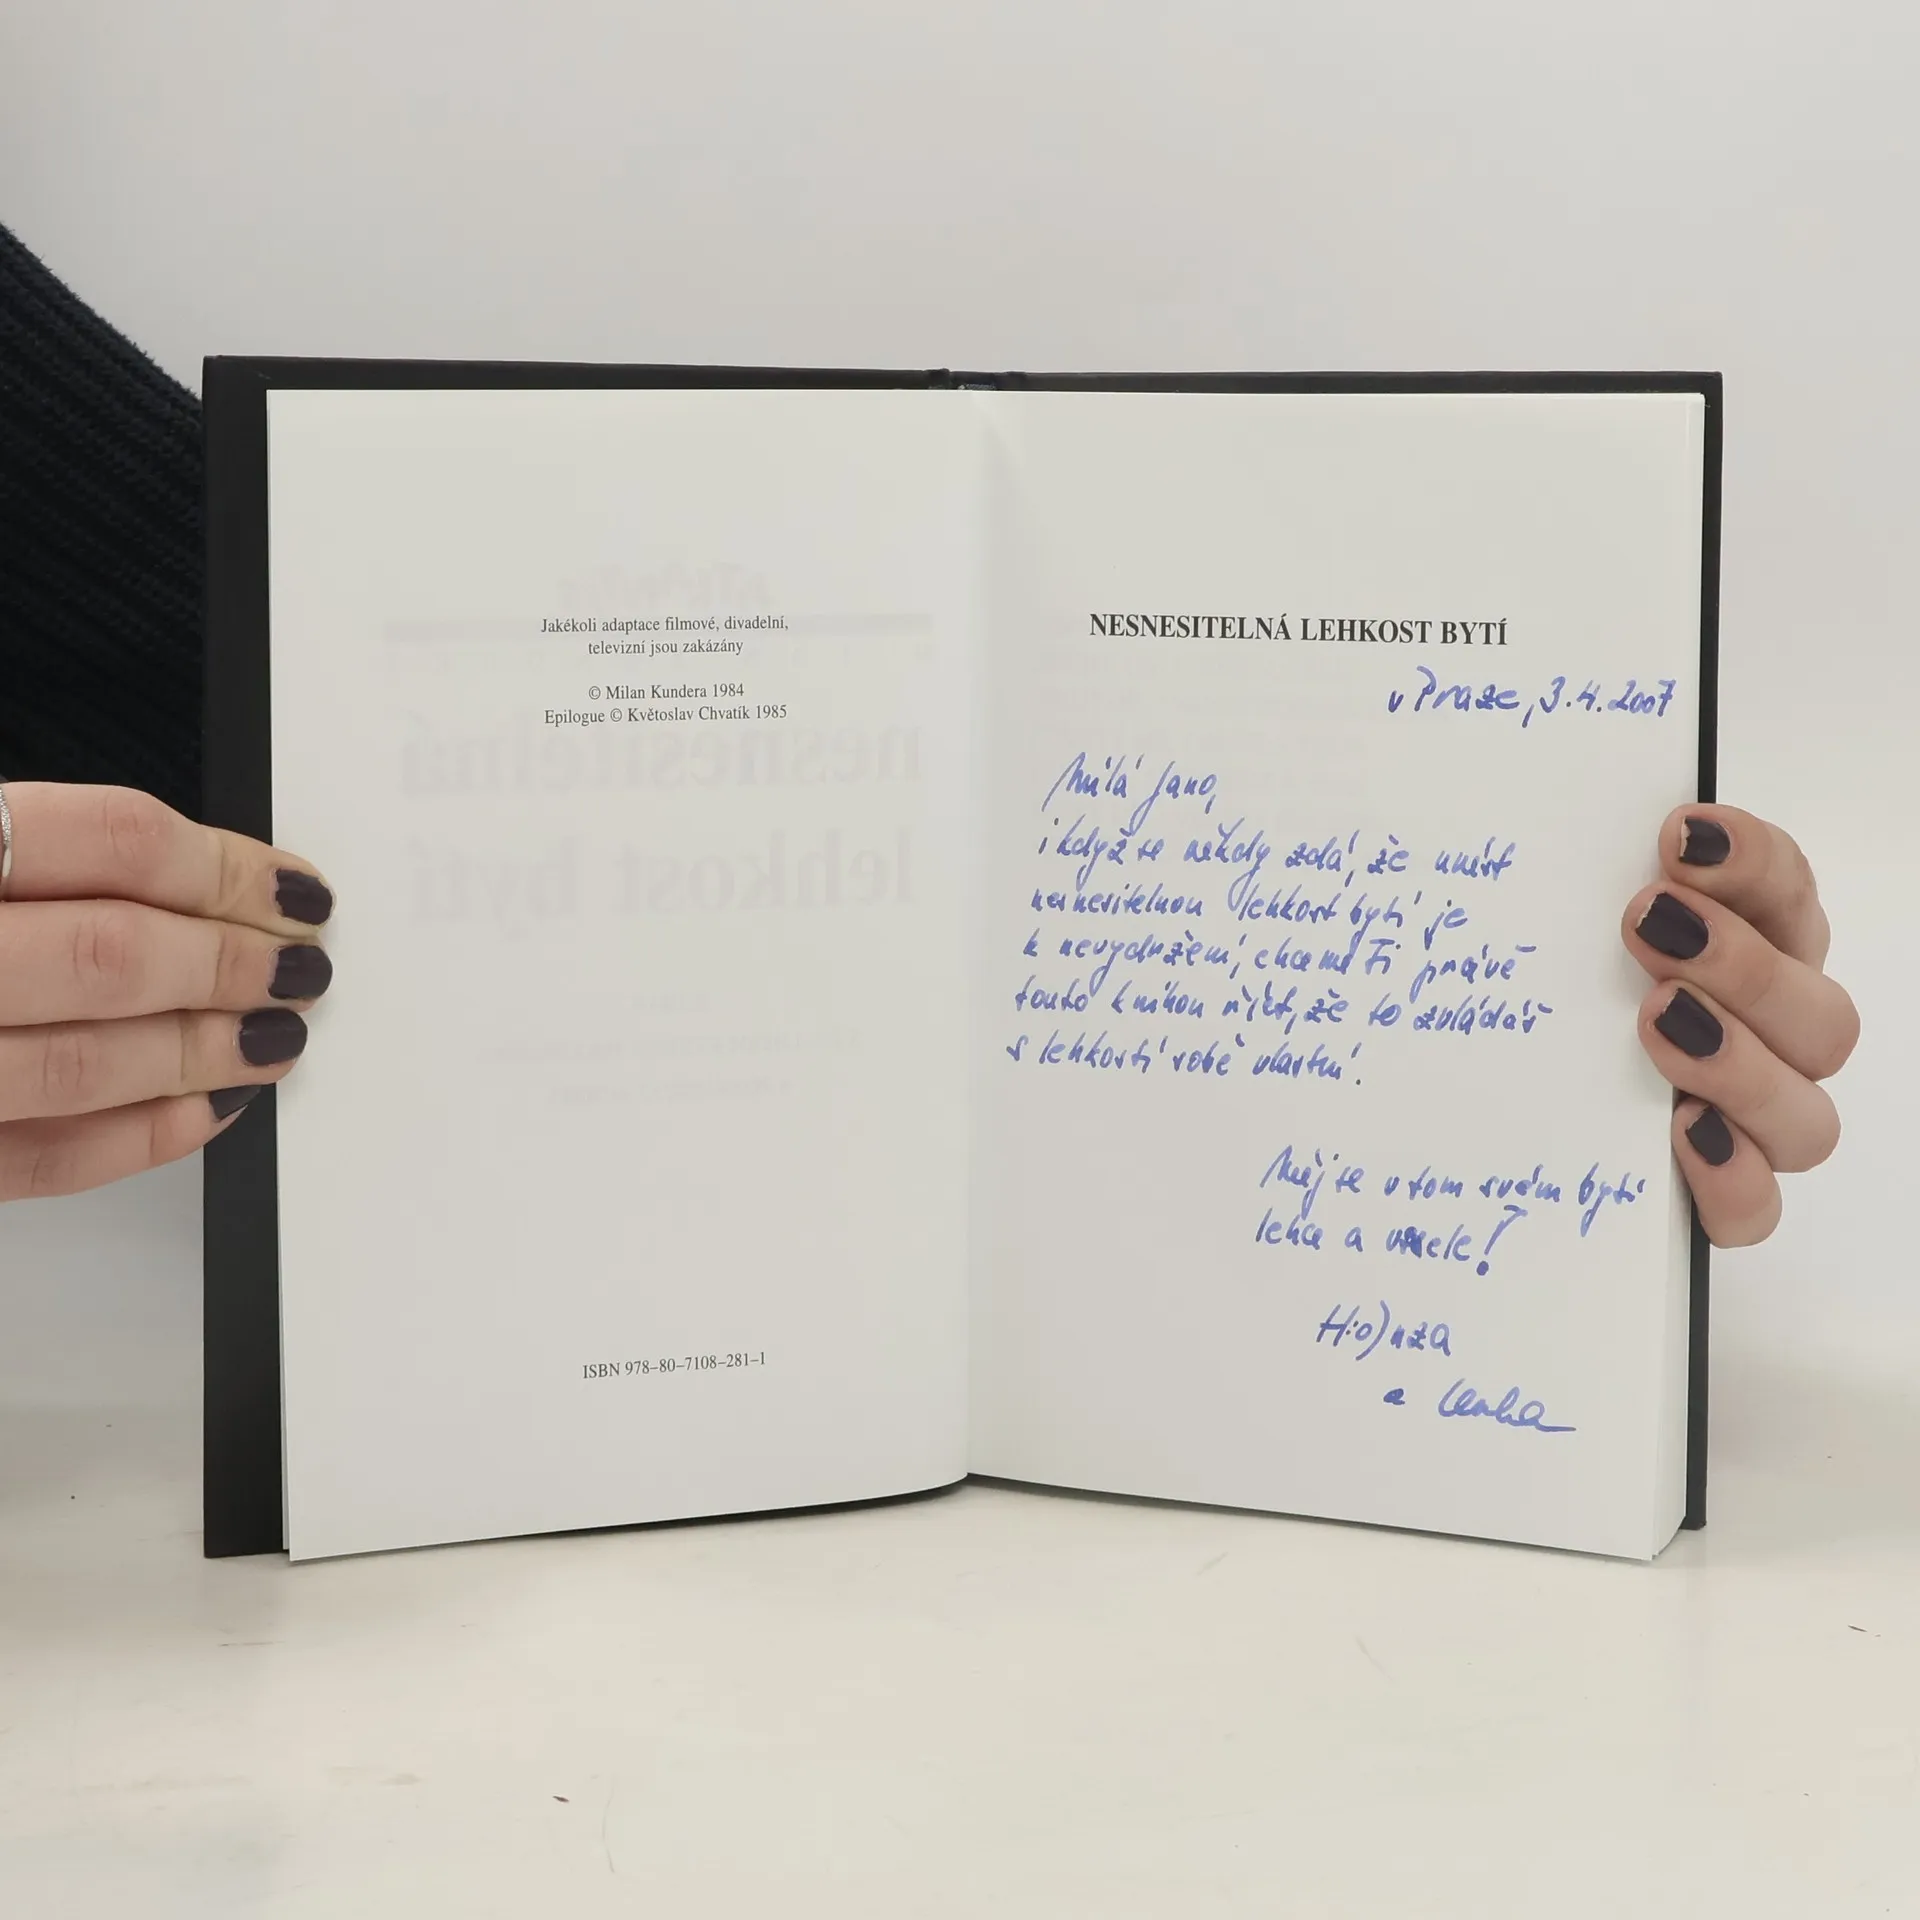 Jakékoli adaptace filmové, divadelní,
televizní jsou zakázány
© Milan Kundera 1984
Epilogue © Květoslav Chvatík 1985
ISBN 978–80–7108–281–1
NESNESITELNÁ LEHKOST BYTÍ
v Praze, 3.4.2007
Milá Jano,
i když se někdy zdá, že unést
nesnesitelnou lehkost bytí je
k nevydržení, chceme Ti právě
touto knihou říct, že to zvládáš
s lehkostí sobě vlastní.
Měj se v tom svém bytí
lehce a vesele!
H:o)nza
a Lenka